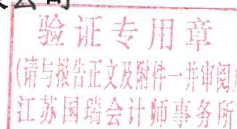 公司
验证专用章
(请与报告正文及附件一并审阅)
江苏国瑞会计师事务所